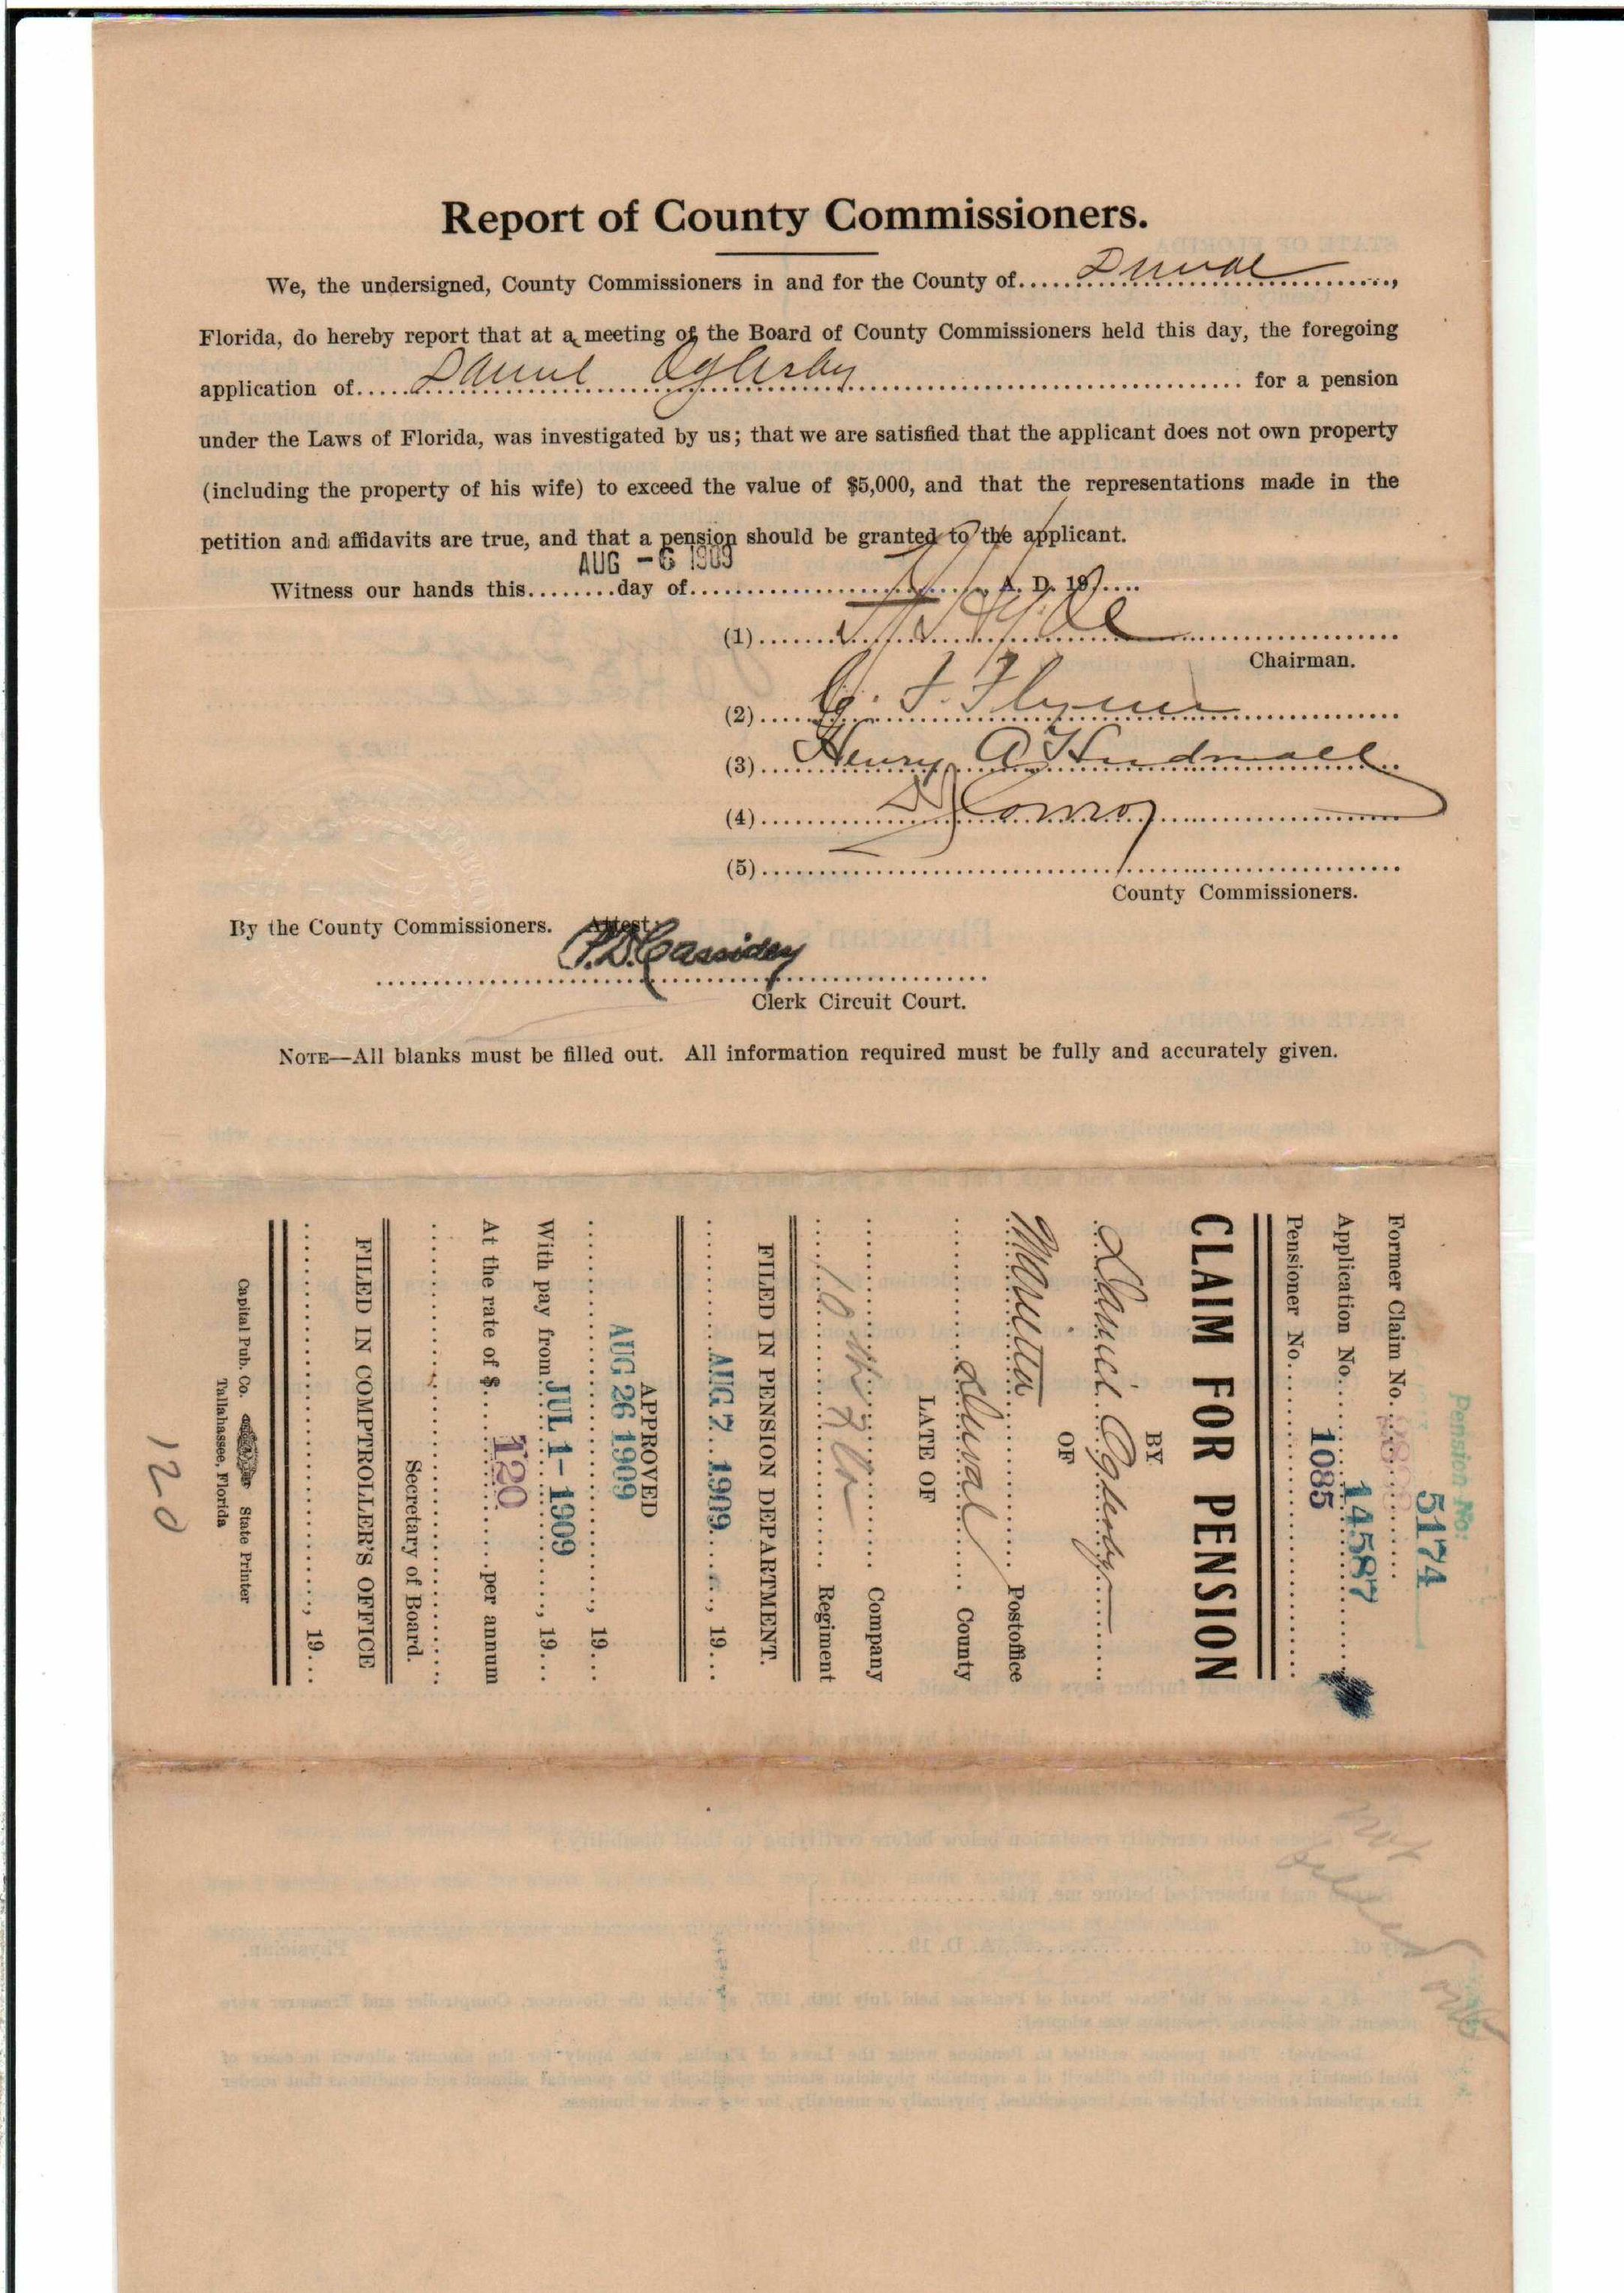 Report of County Commissioners.
We, the undersigned, County Commissioners in and for the County of Duval,
Florida, do hereby report that at a meeting of the Board of County Commissioners held this day, the foregoing
application of Daniel Oglesby for a pension
under the Laws of Florida, was investigated by us; that we are satisfied that the applicant does not own property
(including the property of his wife) to exceed the value of $5,000, and that the representations made in the
petition and affidavits are true, and that a pension should be granted to the applicant.
AUG - 6 1909
Witness our hands this........day of.................... A. D. 19....
(1)
Chairman.
(2) F. Flynn
(3) Henry A Hudnall
(4) Conroy
(5)
County Commissioners.
By the County Commissioners. Attest:
P.D. Cassidey
Clerk Circuit Court.
NOTE—All blanks must be filled out. All information required must be fully and accurately given.
Pension No:
5174
Former Claim No.
14587
Application No.
1085
Pensioner No.
CLAIM FOR PENSION
BY
Daniel Oglesby
OF
Postoffice
Duval County
LATE OF
Company
10th Fla Regiment
FILED IN PENSION DEPARTMENT.
AUG 7 1909, 19...
APPROVED
AUG 26 1909
, 19...
With pay from JUL 1 - 1909, 19...
At the rate of $ 120 per annum
Secretary of Board.
FILED IN COMPTROLLER'S OFFICE
, 19...
Capital Pub. Co. State Printer
Tallahassee, Florida
120